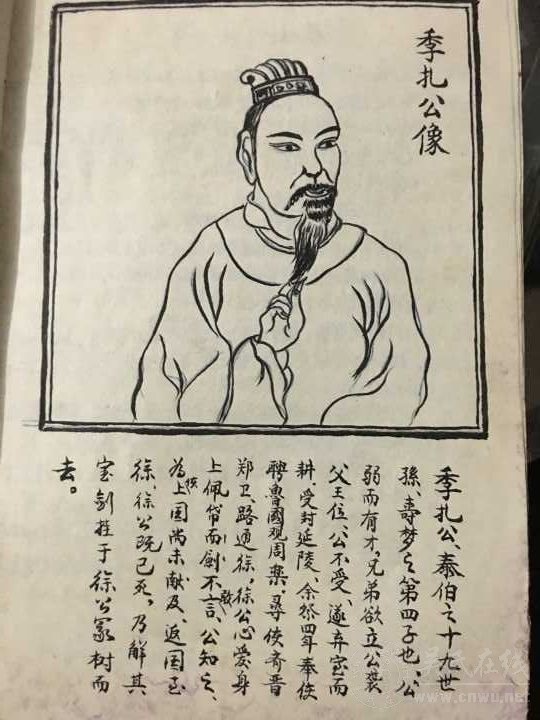 季扎公像
季扎公，泰伯之十九世
孫，壽梦之第四子也，公
弱而有才，兄弟欲立公袭
父王位，公不受，遂弃室而
耕，受封延陵、余祭四年奉使
聘魯國观周樂，尋使齐晋
郑卫，路通徐，徐公心爱身
上佩带而劍不敢言，公知之、
为使上国尚未献及，返国至
徐，徐公既已死，乃解其
宝剑挂于徐公冢树而
去。
吴氏在线
www.cnwu.net